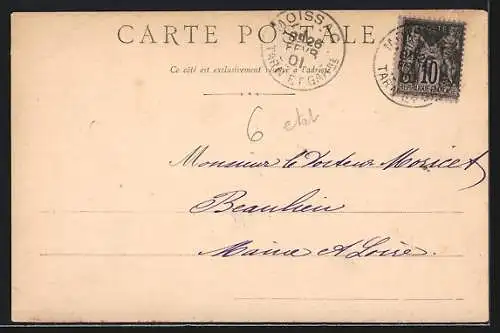 CARTE POSTALE
MOISSAC
26
FEVR
01
TARN ET GARONNE
Ce côté est exclusivement réservé à l'adresse
10
TARN
6
Monsieur le Docteur Moricet
Beaulieu
Maine et Loire